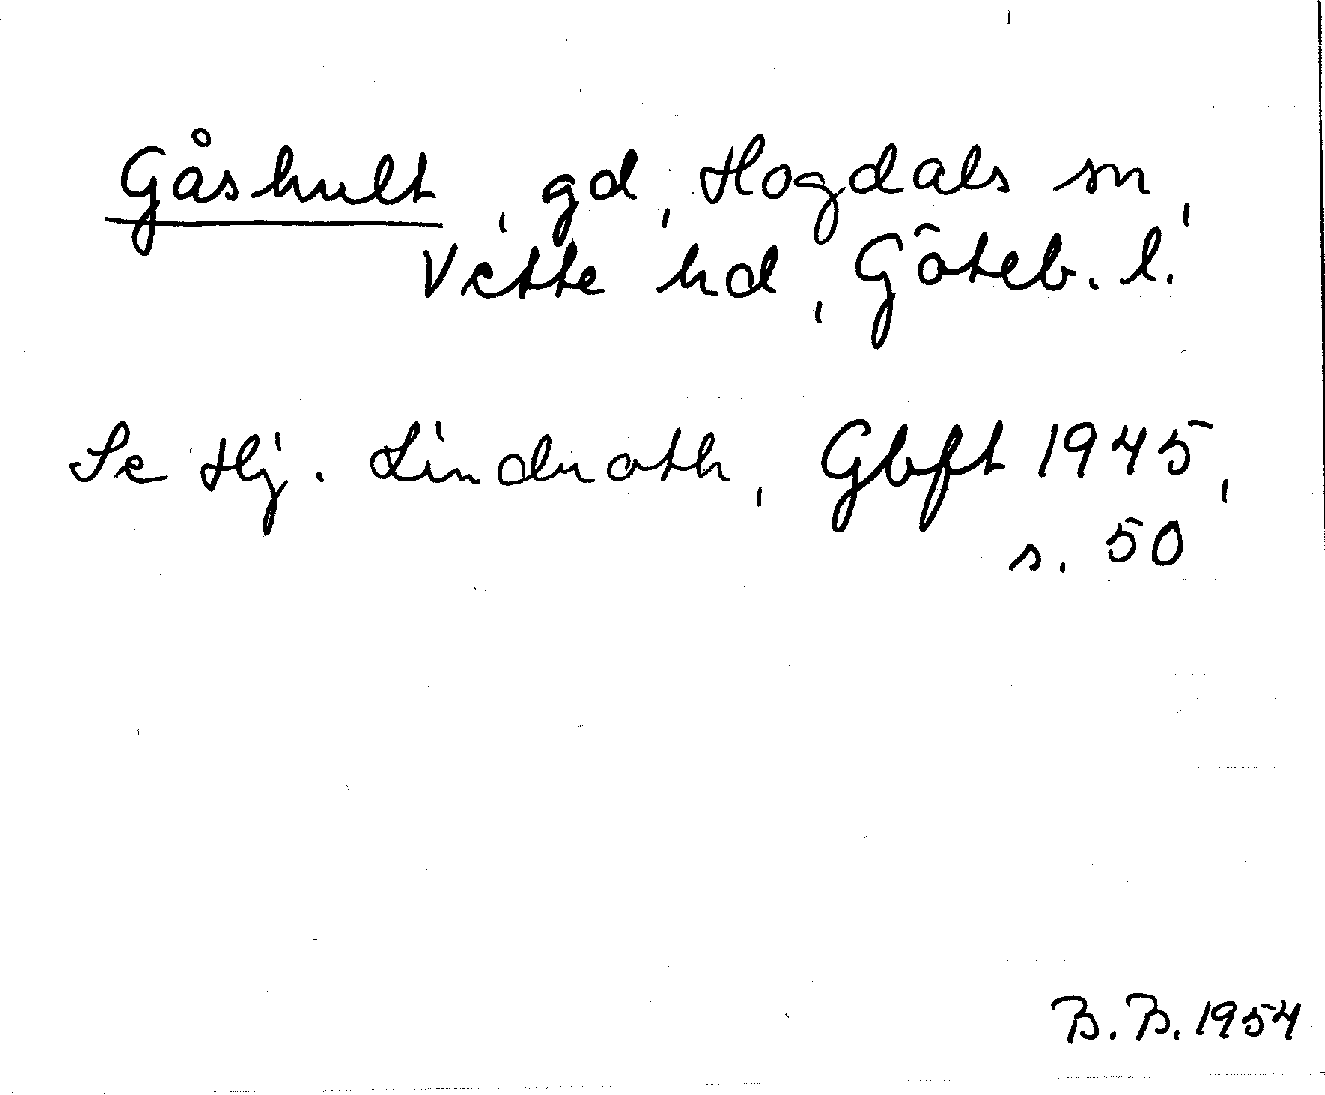 Gåshult, gd, Hogdals sn,
Vette hd, Göteb. l.
Se Hj. Lindroth, Gbft 1945,
s. 50
B.B. 1954